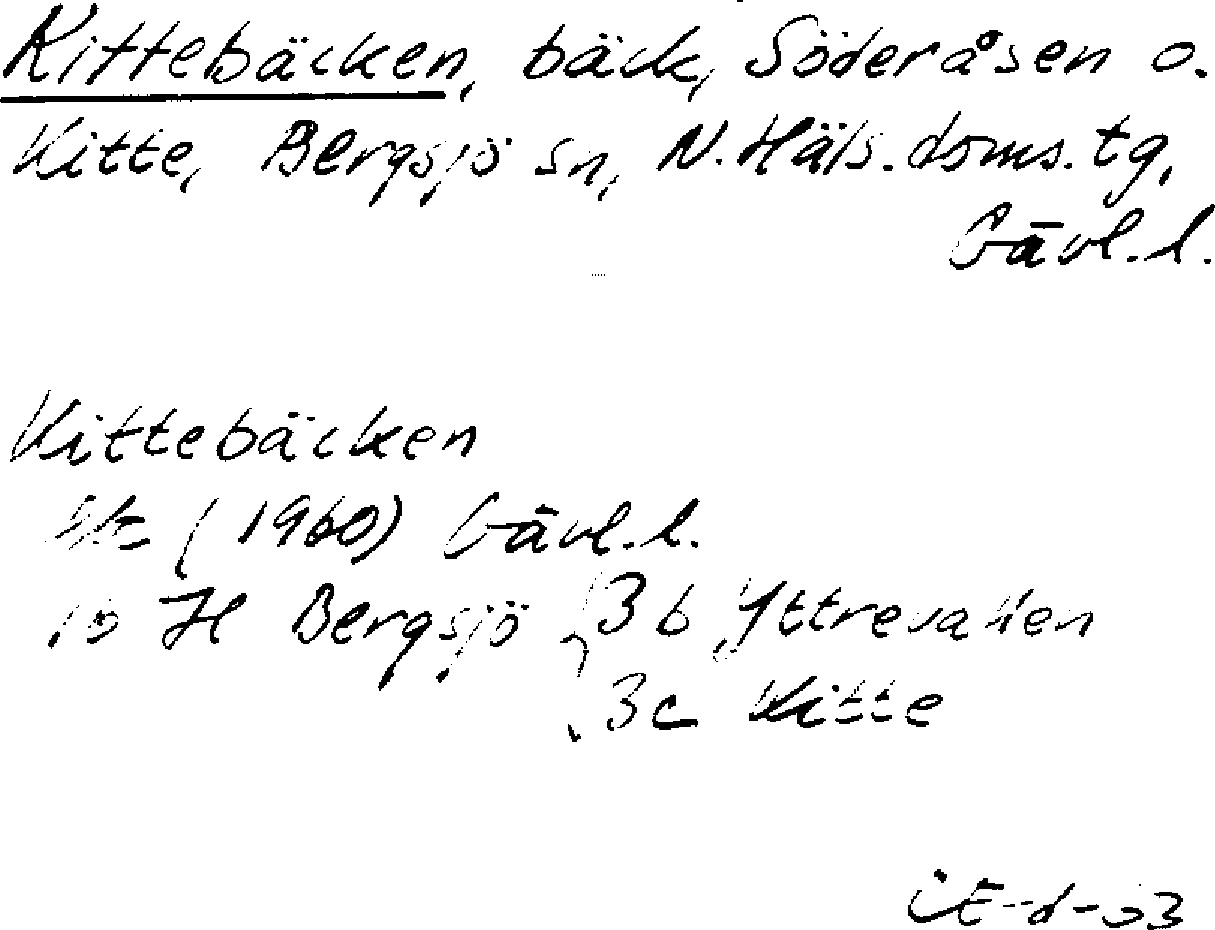 Kittebäcken, bäck, Söderåsen o.
Kitte, Bergsjö sn, N. Häls. doms. tg,
Gävl. l.
Kittebäcken
Ek (1960) Gävl. l.
16 H Bergsjö 3b Yttrevallen
3c Kitte